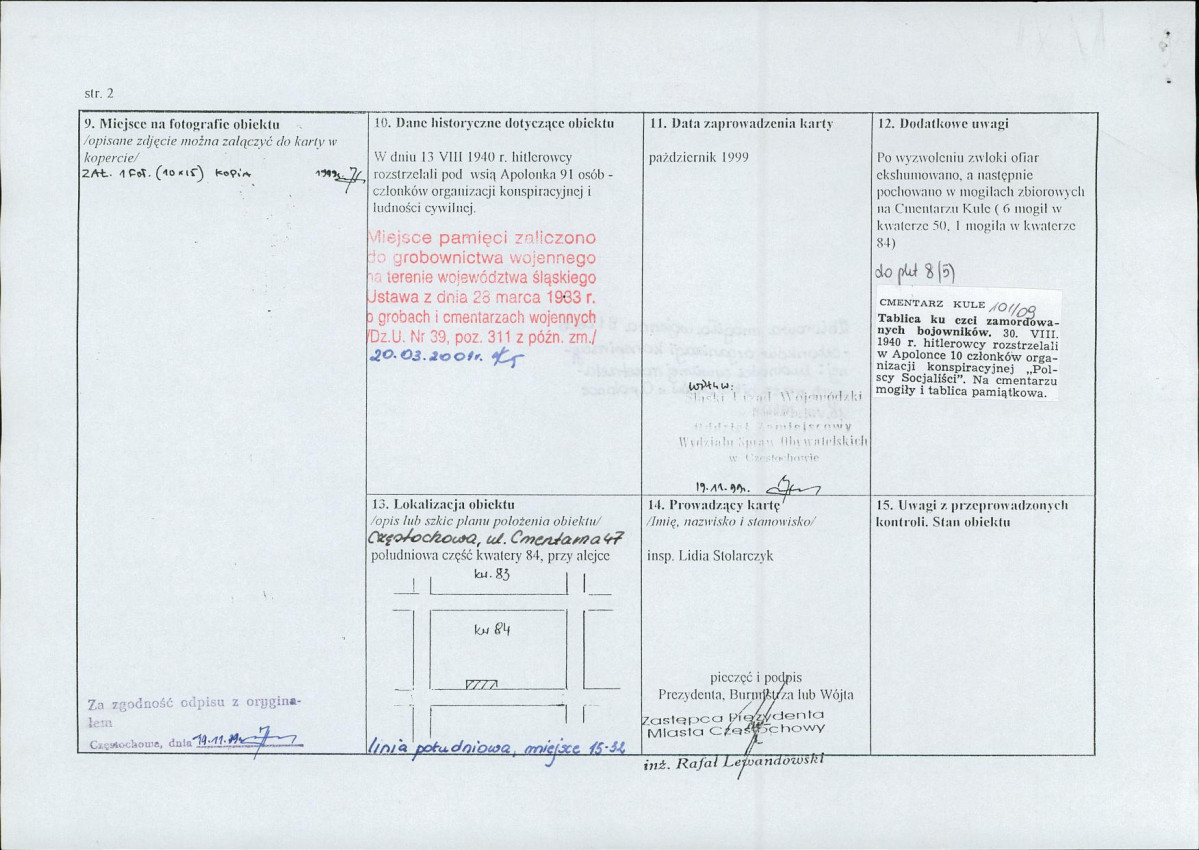 str. 2
9. Miejsce na fotografie obiektu
/opisane zdjęcie można załączyć do karty w
kopercie/
ZAŁ. 1 FOT. (10x15) KOPIA 1999r.
Za zgodność odpisu z orygina-
łem
Częstochowa, dnia 19.11.99r.
10. Dane historyczne dotyczące obiektu
W dniu 13 VIII 1940 r. hitlerowcy
rozstrzelali pod wsią Apolonka 91 osób -
członków organizacji konspiracyjnej i
ludności cywilnej.
Miejsce pamięci zaliczono
do grobownictwa wojennego
na terenie województwa śląskiego
Ustawa z dnia 28 marca 1933 r.
o grobach i cmentarzach wojennych
/Dz.U. Nr 39, poz. 311 z późn. zm./
20.03.2001r.
11. Data zaprowadzenia karty
październik 1999
WPŁYW:
Śląski Urząd Wojewódzki
Oddział Zamiejscowy
Wydziału Spraw Obywatelskich
w Częstochowie
19.11.99r.
12. Dodatkowe uwagi
Po wyzwoleniu zwłoki ofiar
ekshumowano, a następnie
pochowano w mogiłach zbiorowych
na Cmentarzu Kule ( 6 mogił w
kwaterze 50, 1 mogiła w kwaterze
84)
do pkt 8(5)
CMENTARZ KULE 101/09
Tablica ku czci zamordowa-
nych bojowników. 30. VIII.
1940 r. hitlerowcy rozstrzelali
w Apolonce 10 członków orga-
nizacji konspiracyjnej „Pol-
scy Socjaliści”. Na cmentarzu
mogiły i tablica pamiątkowa.
13. Lokalizacja obiektu
/opis lub szkic planu położenia obiektu/
Częstochowa, ul. Cmentarna 47
południowa część kwatery 84, przy alejce
kw. 83
kw 84
linia południowa, miejsce 15-32
14. Prowadzący kartę
/Imię, nazwisko i stanowisko/
insp. Lidia Stolarczyk
pieczęć i podpis
Prezydenta, Burmistrza lub Wójta
Zastępca Prezydenta
Miasta Częstochowy
inż. Rafał Lewandowski
15. Uwagi z przeprowadzonych
kontroli. Stan obiektu